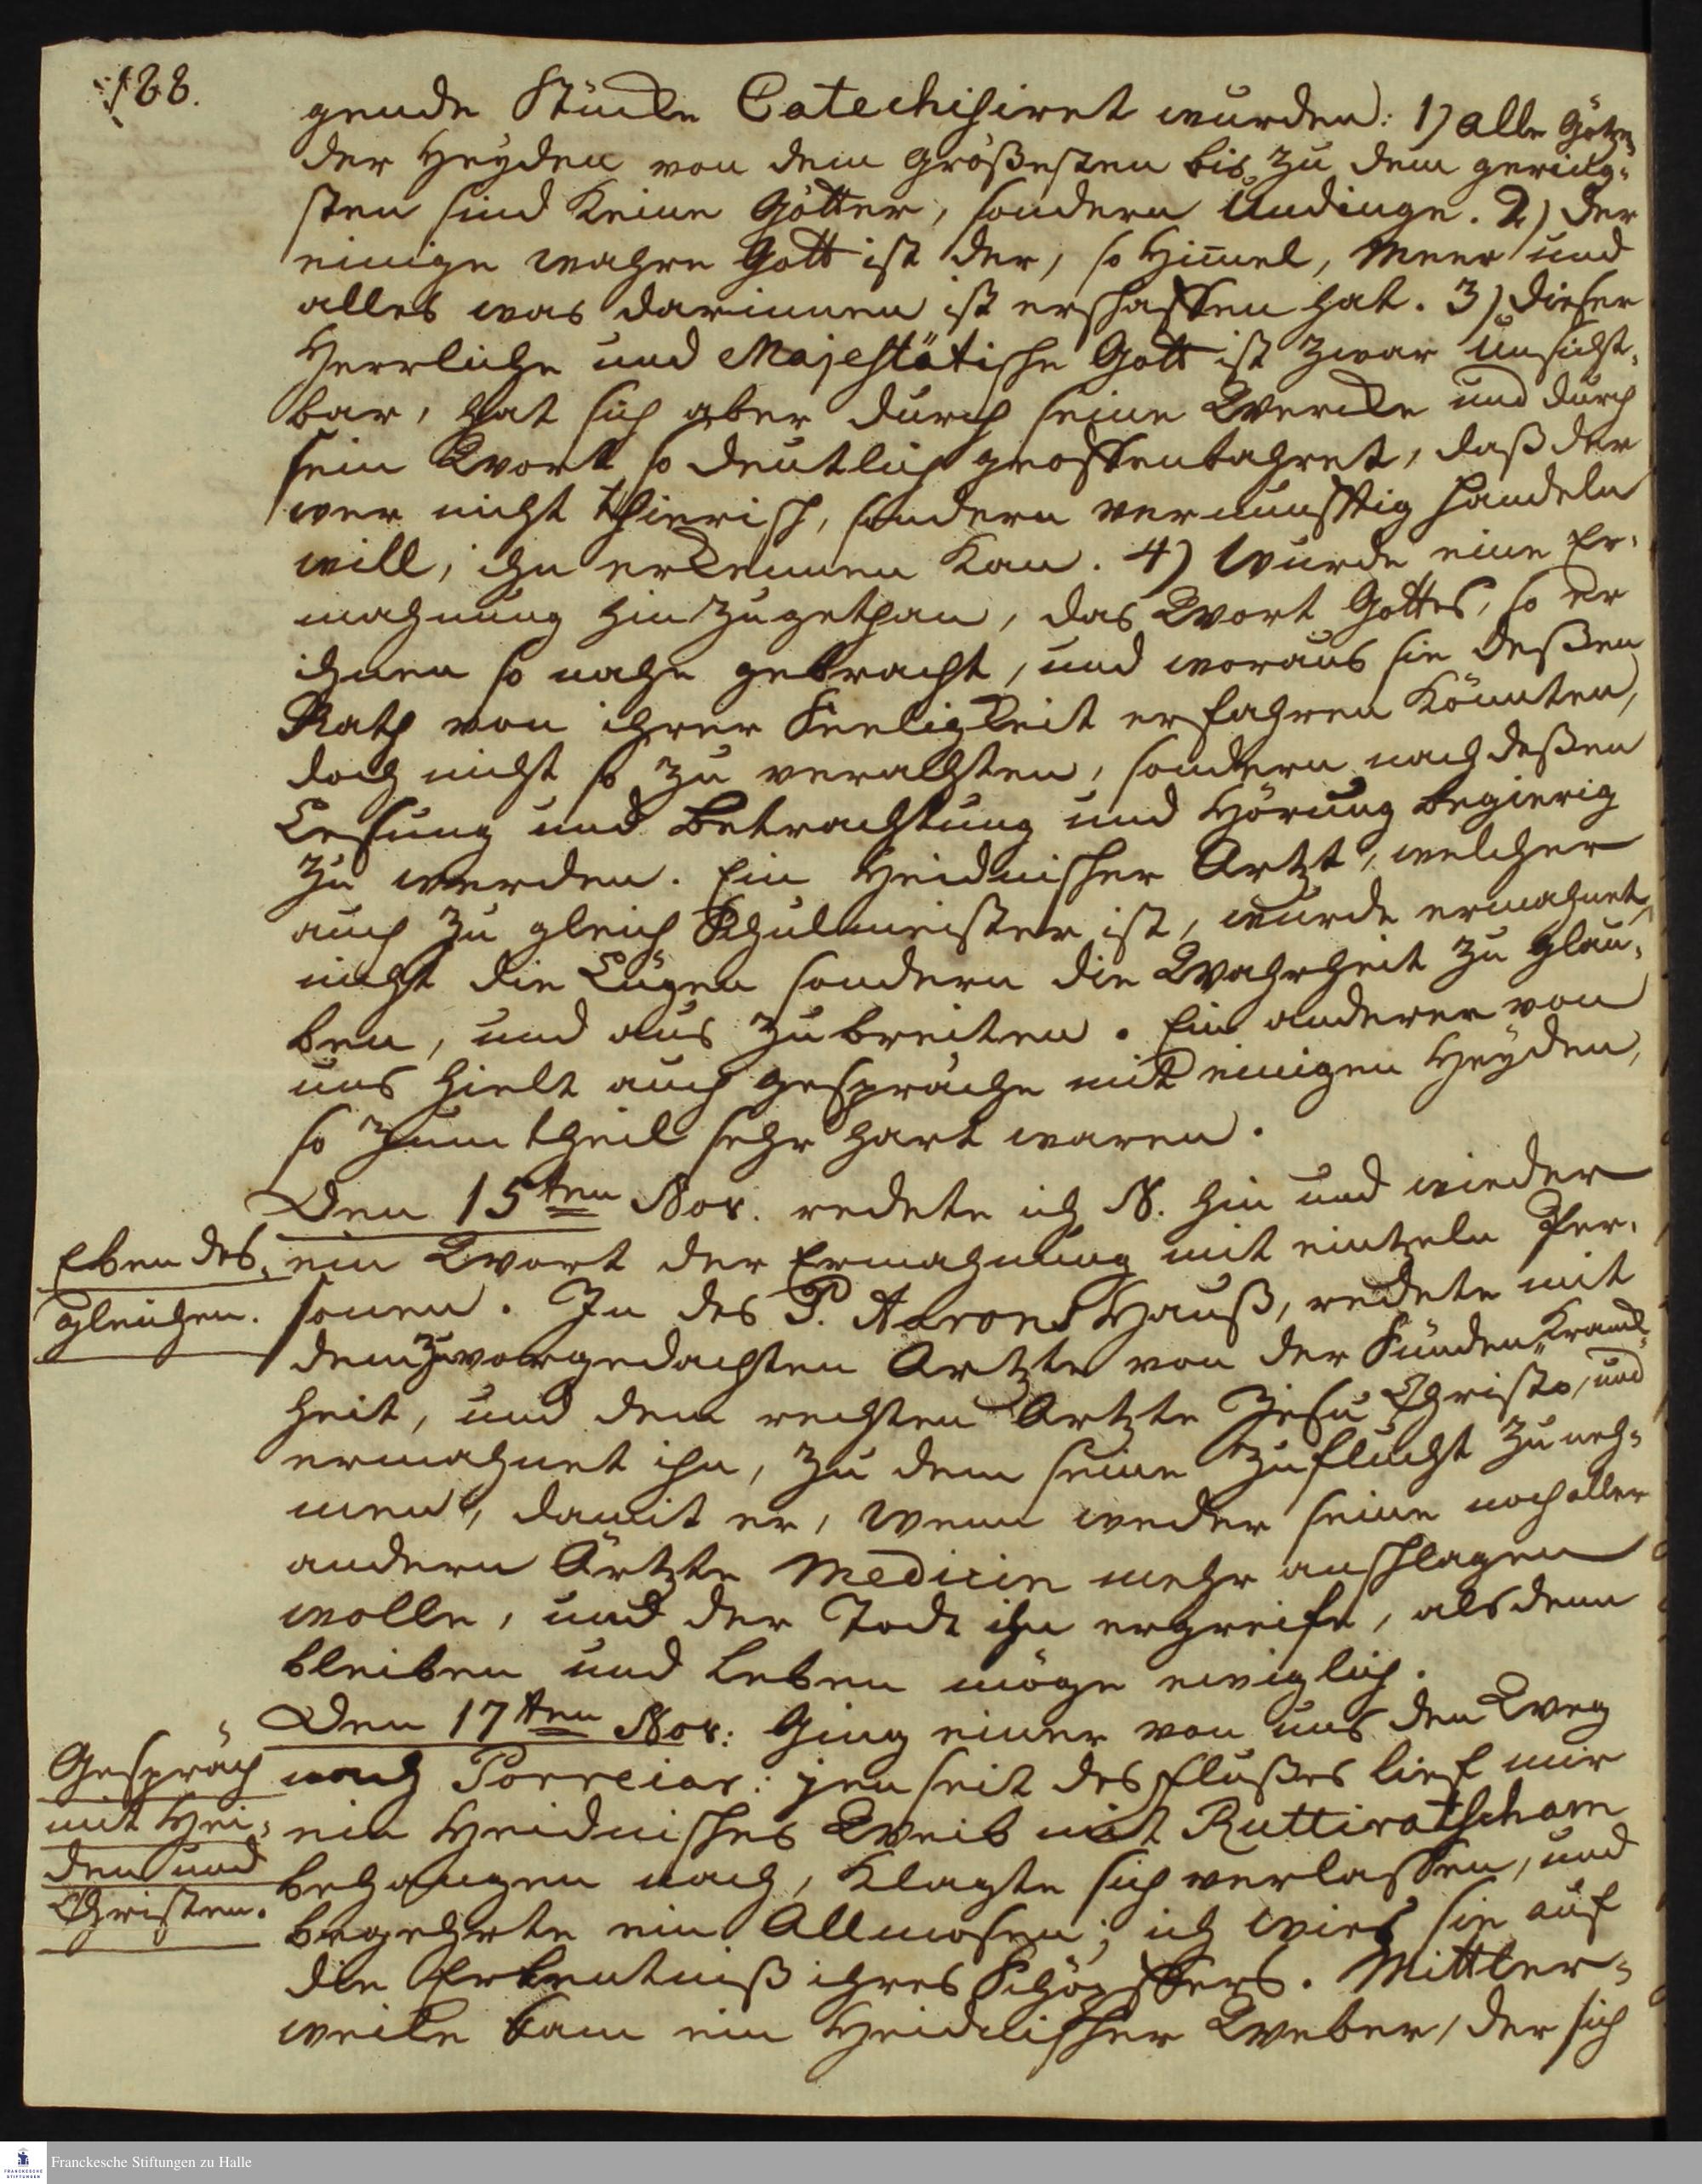 188.
gende Stücke Catechisiret wurden: 1) alle Götzen
der Heyden von dem größesten bis zu dem gering-
sten sind keine Götter, sondern Undinge. 2) Der
einige wahre Gott ist der, so Him̅el, Meer und
alles was darinnen ist erschaffen hat. 3) dieser
Herrliche und Majestätische Gott ist zwar Unsicht-
bar, hat sich aber durch seine Wercke und durch
sein Wort so deutlich geoffenbahret, daß der
wer nicht thierisch, sondern vernunfftig handeln
will, ihn erkennen kan. 4) Wurde eine Er-
mahnung hinzugethan, das Wort Gottes, so er
ihnen so nahe gebracht, und woraus sie deßen
Rath von ihrer Seeligkeit erfahren könnten,
doch nicht so zu verachten, sondern nach deßen
Lesung und Betrachtung und Hörung begierig
zu werden. Ein Heidnischer Artzt, welcher
auch zu gleich Schulmeister ist, wurde ermahnet,
nicht die Lügen sondern die Wahrheit zu glau-
ben, und aus zubreiten. Ein anderer von
uns hielt auch gespräche mit einigen Heyden,
so zum theil sehr hart waren.
Den 15ten Nov. redete ich N. hin und wieder
Eben des- ein Wort der Ermahnung mit eintzeln Per-
gleichen. sonen. In des P. Aarons Hauß, redete mit
dem zuvorgedachten Artzte von der Sünden-Kranck-
heit, und dem rechten Artzte Jesu Christo, und
ermahnet ihn, zu dem seine Zuflucht zu neh-
men, damit er, wenn weder seine noch aller
andern Ärtzte Medicin mehr anschlagen
wolle, und der Todt ihn ergreife, als denn
bleiben und leben möge ewiglich.
Den 17ten Nov: Ging einer von uns den Weg
Gespräch nach Porreiar: jenseit des Flußes lief mir
mit Hei- ein Heidnisches Weib mit Ruttiratscham
den und behangen nach, klagte sich verlassen, und
Christen. begehrte ein Allmosen; ich wies sie auf
die Erkentniß ihres Schöpffers. Mittler-
weile kam ein Heidnischer Weber, der sich
Franckesche Stiftungen zu Halle